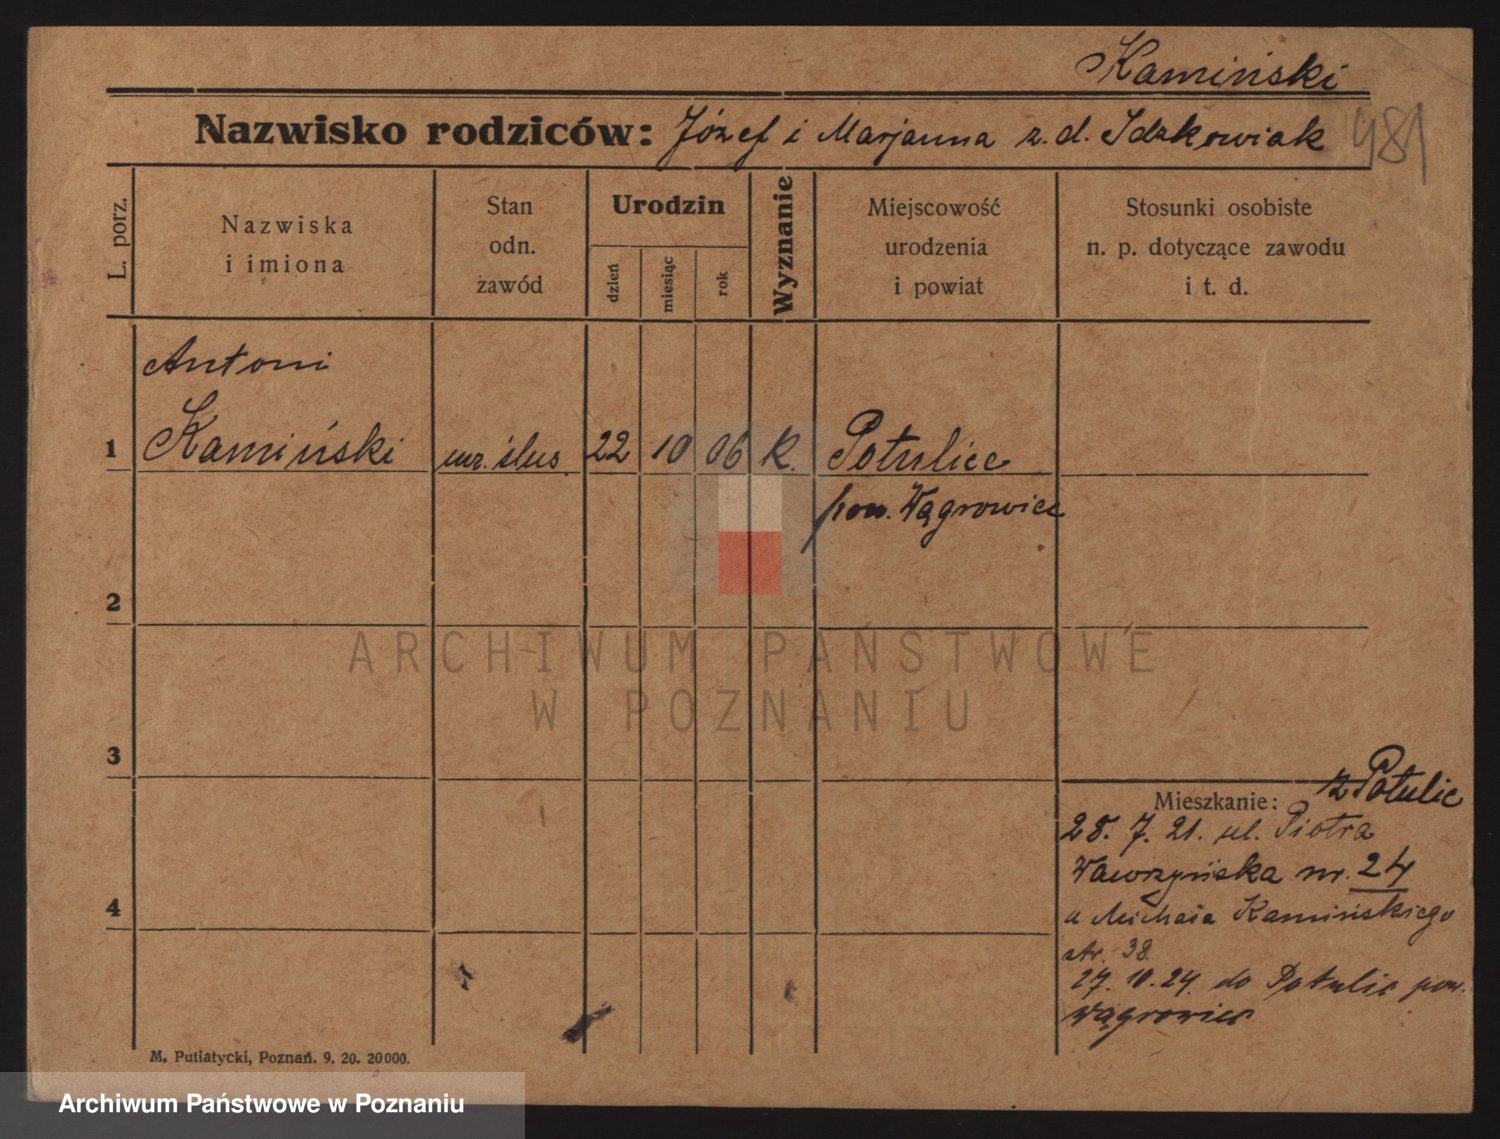 Kamiński
Nazwisko rodziców: Józef i Marjanna z. d. Idzkowiak
481
L. porz.
Nazwiska
i imiona
Stan
odn.
zawód
Urodzin
dzień
miesiąc
rok
Wyznanie
Miejscowość
urodzenia
i powiat
Stosunki osobiste
n. p. dotyczące zawodu
i t. d.
Antoni
1 Kamiński ucz. ślus. 22 10 06 K. Potulice
pow. Wągrowiec
2
ARCHIWUM PAŃSTWOWE
W POZNANIU
3
Mieszkanie: z Potulic
28. 7. 21. ul. Piotra
Wawrzyńska nr. 24
u Michała Kamińskiego
4
38.
27. 10. 24. do Potulic pow.
Wągrowiec
M. Putiatycki, Poznań. 9. 20. 20000.
Archiwum Państwowe w Poznaniu